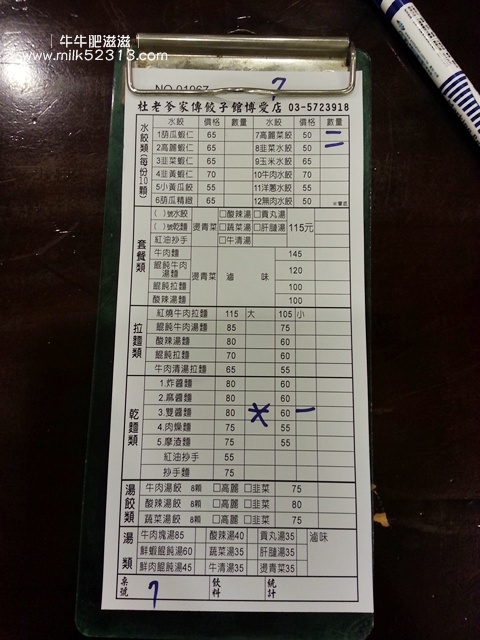 牛牛肥滋滋
www.milk52313.com
NO 01967
7
杜老爹家傳餃子館博愛店 03-5723918
水餃類(每份10顆)
水餃 價格 數量 水餃 價格 數量
1胡瓜蝦仁 65 7高麗菜餃 50 二
2高麗蝦仁 65 8韭菜水餃 50
3韭菜蝦仁 65 9玉米水餃 60
4韭黃蝦仁 70 10牛肉水餃 70
5小黃瓜餃 55 11洋蔥水餃 55
6胡瓜精緻 65 12無肉水餃 50
套餐類
( )號水餃 燙青菜 □酸辣湯 □貢丸湯 115元
( )號乾麵 □蔬菜湯 □肝腱湯
紅油抄手 □牛清湯
牛肉麵 燙青菜 滷味 145
餛飩牛肉湯麵 120
餛飩拉麵 100
酸辣湯麵 100
拉麵類
紅燒牛肉拉麵 115 大 105 小
餛飩牛肉湯麵 85 75
酸辣湯麵 80 60
餛飩拉麵 70 60
牛肉清湯拉麵 65 55
乾麵類
1.炸醬麵 80 60
2.麻醬麵 80 60
3.雙醬麵 80 60 一
4.肉燥麵 75 55
5.摩渣麵 75 55
紅油抄手 55
抄手麵 75
湯餃類
牛肉湯餃 8顆 □高麗 □韭菜 75
酸辣湯餃 8顆 □高麗 □韭菜 80
蔬菜湯餃 8顆 □高麗 □韭菜 75
湯類
牛肉塊湯85 酸辣湯40 貢丸湯35 滷味
鮮蝦餛飩湯60 蔬菜湯35 肝腱湯35
鮮肉餛飩湯45 牛清湯35 燙青菜35
桌號 7 飲料 統計